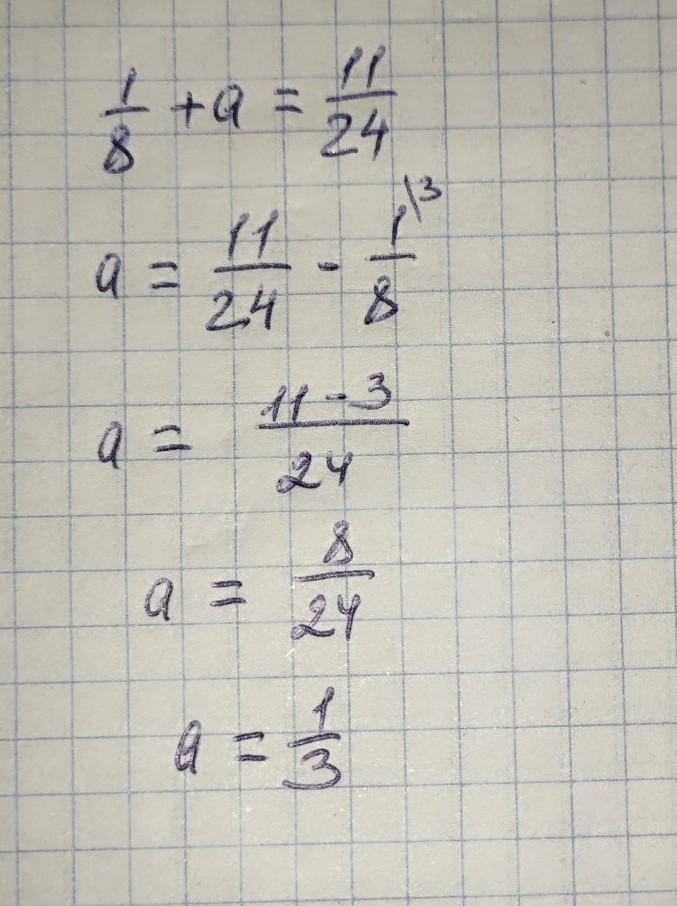 1/8 + a = 11/24
a = 11/24 - 1\3/8
a = 11-3/24
a = 8/24
a = 1/3